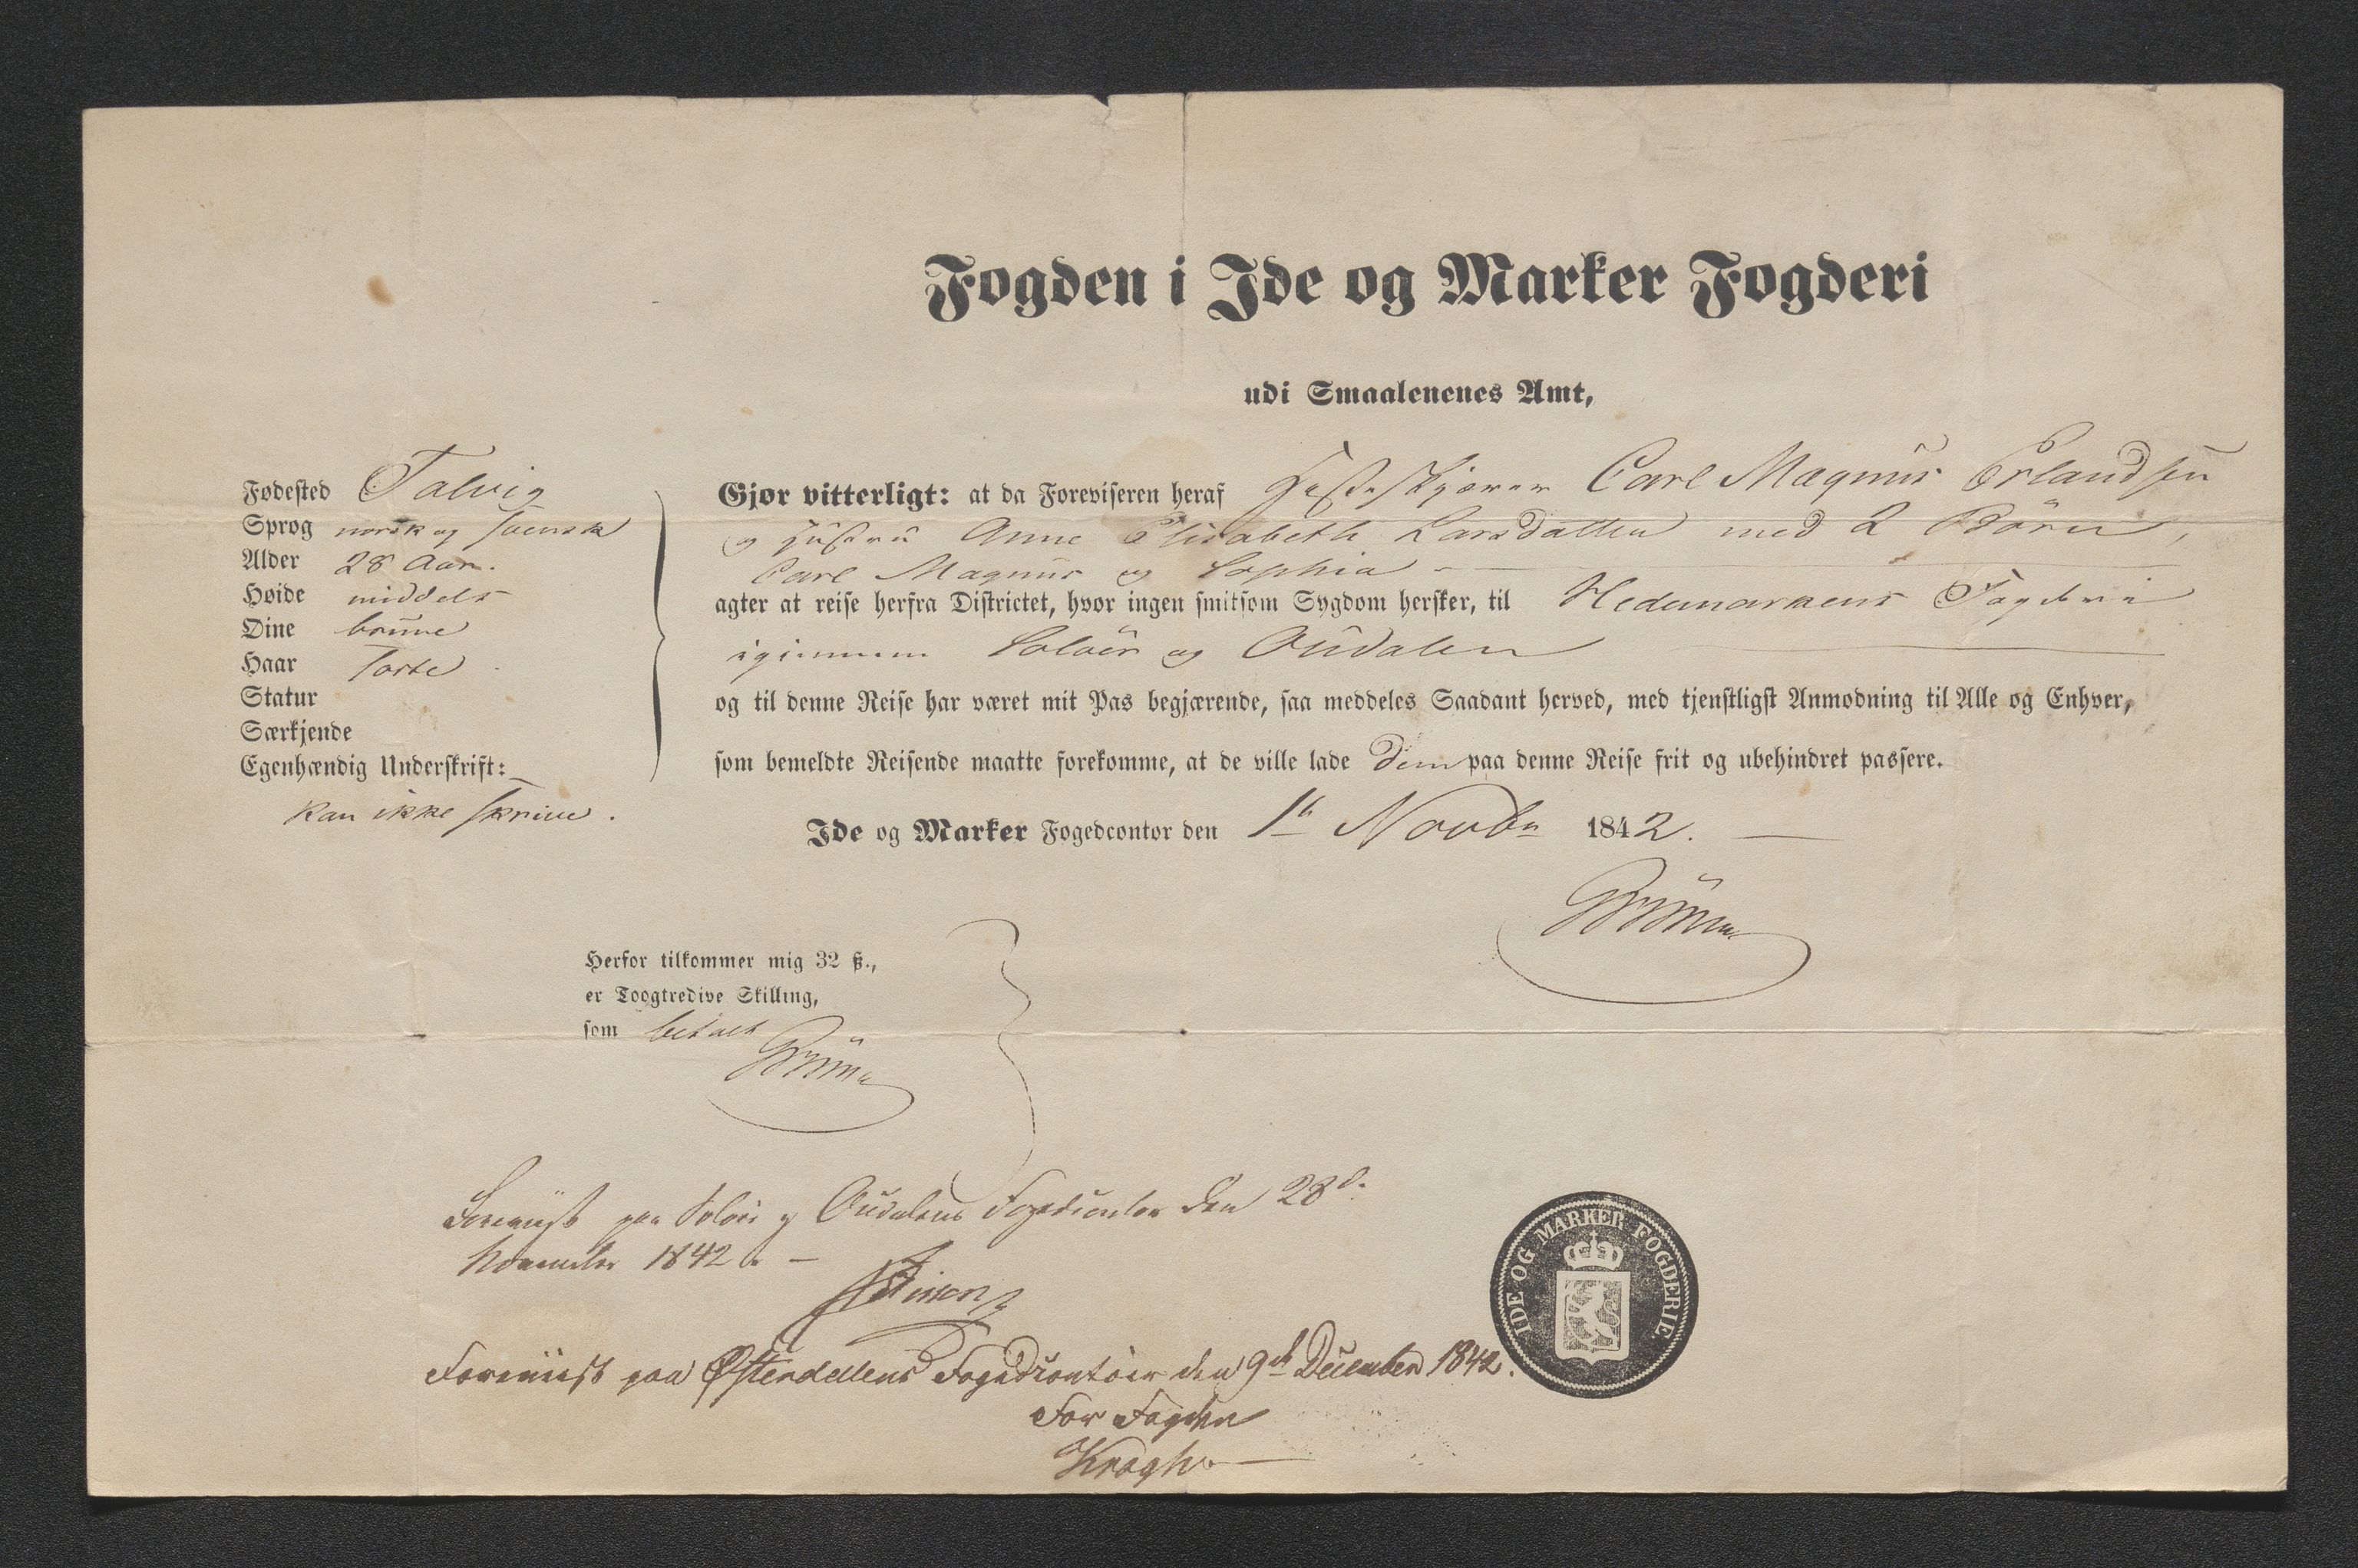 Fogden i Ide og Marker Fogderi
udi Smaalenenes Amt,
Fødested Talvig
Sprog norsk og svensk
Alder 28 Aar.
Høide middels
Øine brune
Haar sorte
Statur
Særkjende
Egenhændig Underskrift:
kan ikke skrive.
Gjør vitterligt: at da Foreviseren heraf Hesteskjærer Carl Magnus Erlandsen
og Hustru Anne Elisabeth Larsdatter med 2 Børn,
Carl Magnus og Sophia
agter at reise herfra Districtet, hvor ingen smitsom Sygdom hersker, til Hedemarkens Fogderi
igjennem Soløer og Oudalen
og til denne Reise har været mit Pas begjærende, saa meddeles Saadant herved, med tjenstligst Anmodning til Alle og Enhver,
som bemeldte Reisende maatte forekomme, at de ville lade dem paa denne Reise frit og ubehindret passere.
Ide og Marker Fogedcontor den 1te Novbr 1842.
Herfor tilkommer mig 32 ß.,
er Toogtredive Skilling,
som betalt
Foreviist paa Soløer og Oudalens Fogedcontor den 28d.
November 1842.
Foreviist paa Østerdalens Fogedcontoir den 9de December 1842.
For Fogden
Kragh
IDE OG MARKER FOGDERIE.